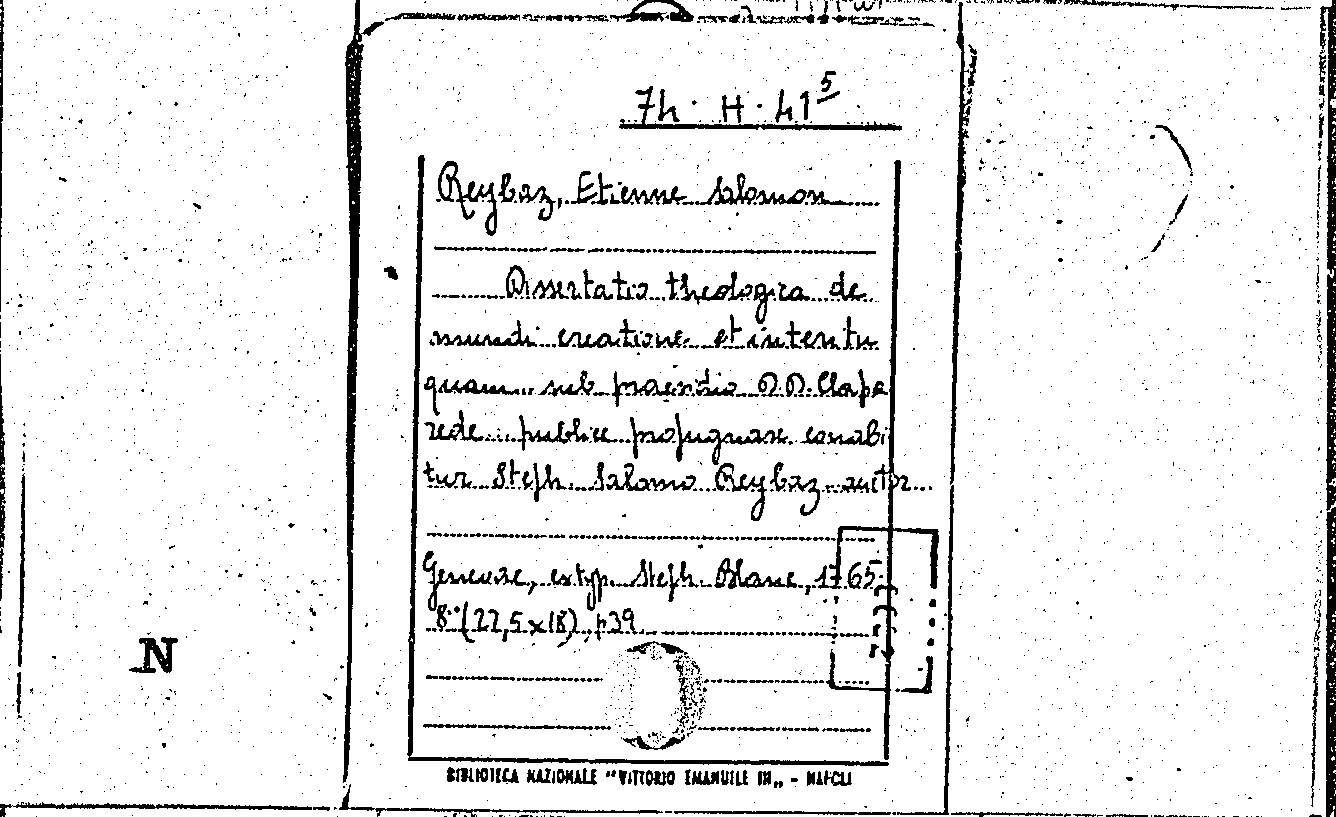 74. H. 41⁵
Reybaz, Etienne Salomon
Dissertatio theologica de
mundi creatione et interitu
quam sub praesidio D.D. Clapa
rede publice propugnare conabi
tur Steph. Salomo Reybaz auctor
Genevae, ex typ. Steph. Blanc, 1765.
8° (22,5x18), p 39
N
BIBLIOTECA NAZIONALE "VITTORIO EMANUELE III„ - NAPOLI